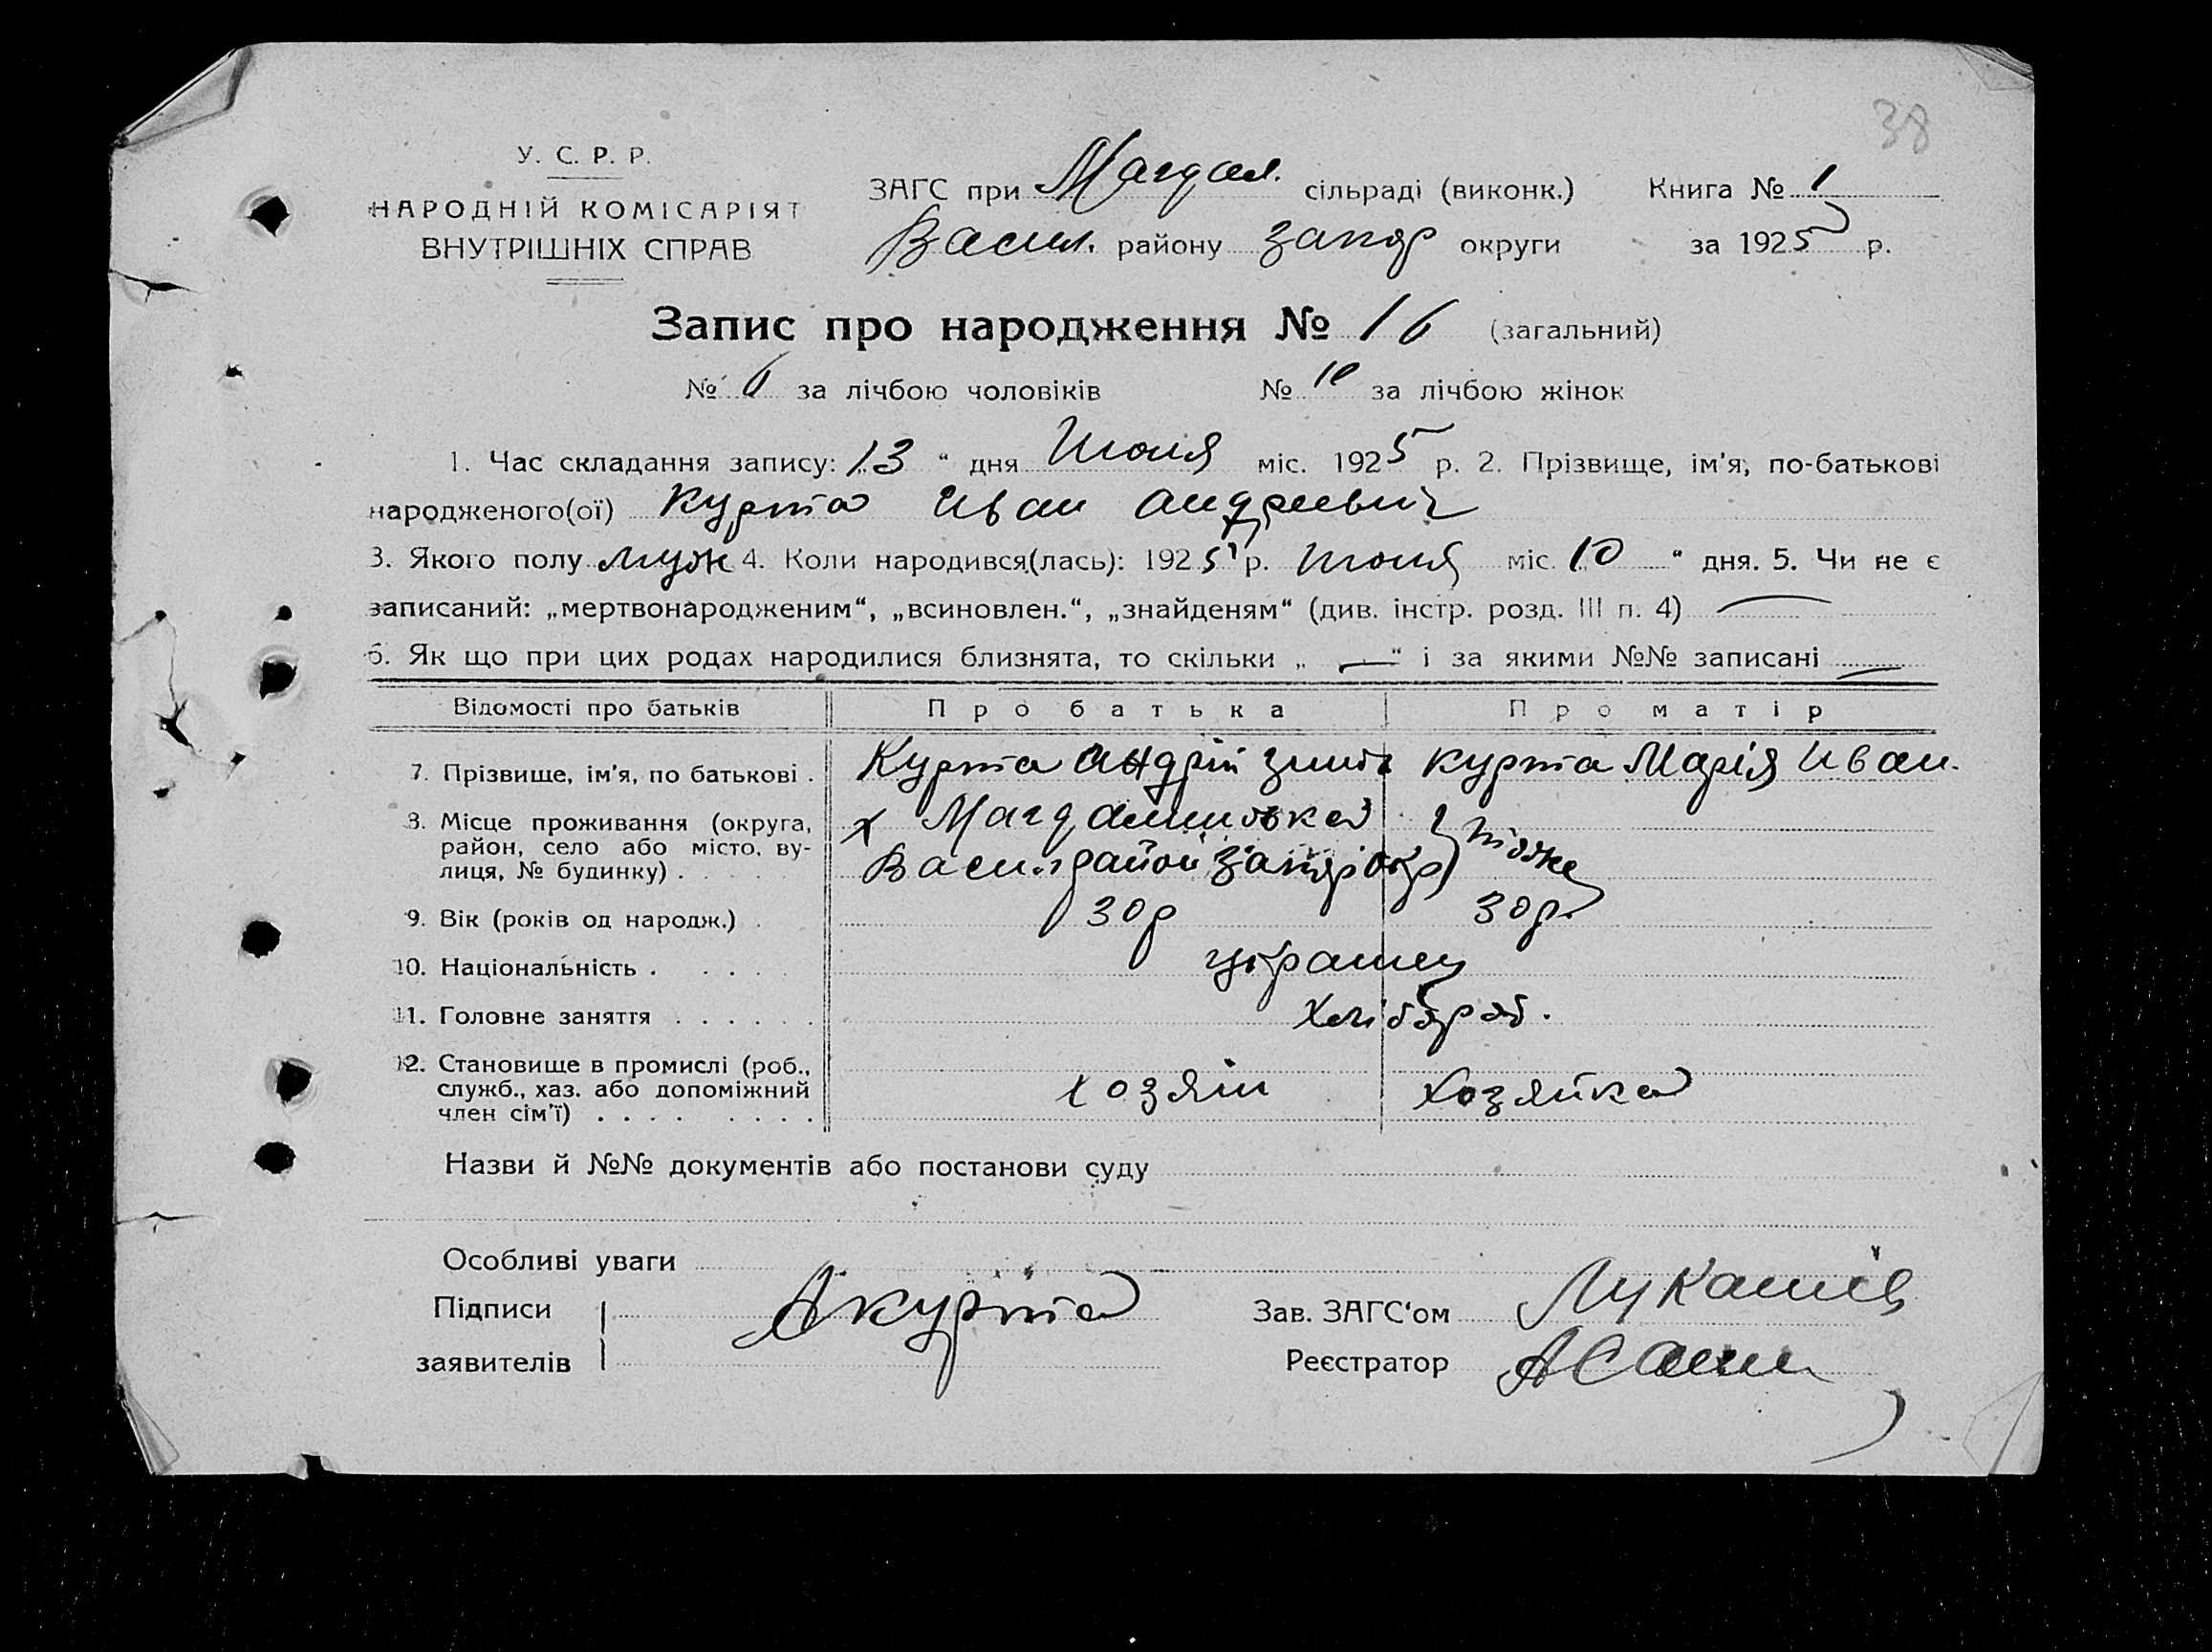 38
У. С. Р. Р.
НАРОДНІЙ КОМІСАРІЯТ
ВНУТРІШНІХ СПРАВ
ЗАГС при Магдал. сільраді (виконк.) Книга № 1
Васил. району Запор округи за 1925 р.
Запис про народження № 16 (загальний)
№ 6 за лічбою чоловіків № 10 за лічбою жінок
1. Час складання запису: „13“ дня Июля міс. 1925 р. 2. Прізвище, ім'я, по-батькові
народженого(ої) Курта Иван Андреевич
3. Якого полу муж 4. Коли народився(лась): 1925 р. Июля міс. „10“ дня. 5. Чи не є
записаний: „мертвонародженим“, „всиновлен.“, „знайденям“ (див. інстр. розд. III п. 4) —
6. Як що при цих родах народилися близнята, то скільки „—“ і за якими №№ записані —
Відомості про батьків Про батька Про матір
7. Прізвище, ім'я, по батькові . Курта Андрій Курта Марія Иван.
8. Місце проживання (округа, район, село або місто, вулиця, № будинку) . х Магдалиновка
Васил район Запор окр } тоже
9. Вік (років од народж.) . 30 р 30 р.
10. Національність . . . . украинец
11. Головне заняття . . . . . . Хлібороб.
12. Становище в промислі (роб., служб., хаз. або допоміжний член сім'ї) . . . . . . . . хозяін Хозяйка
Назви й №№ документів або постанови суду
Особливі уваги
Підписи заявителів А Курта
Зав. ЗАГС'ом Лукашів
Реєстратор